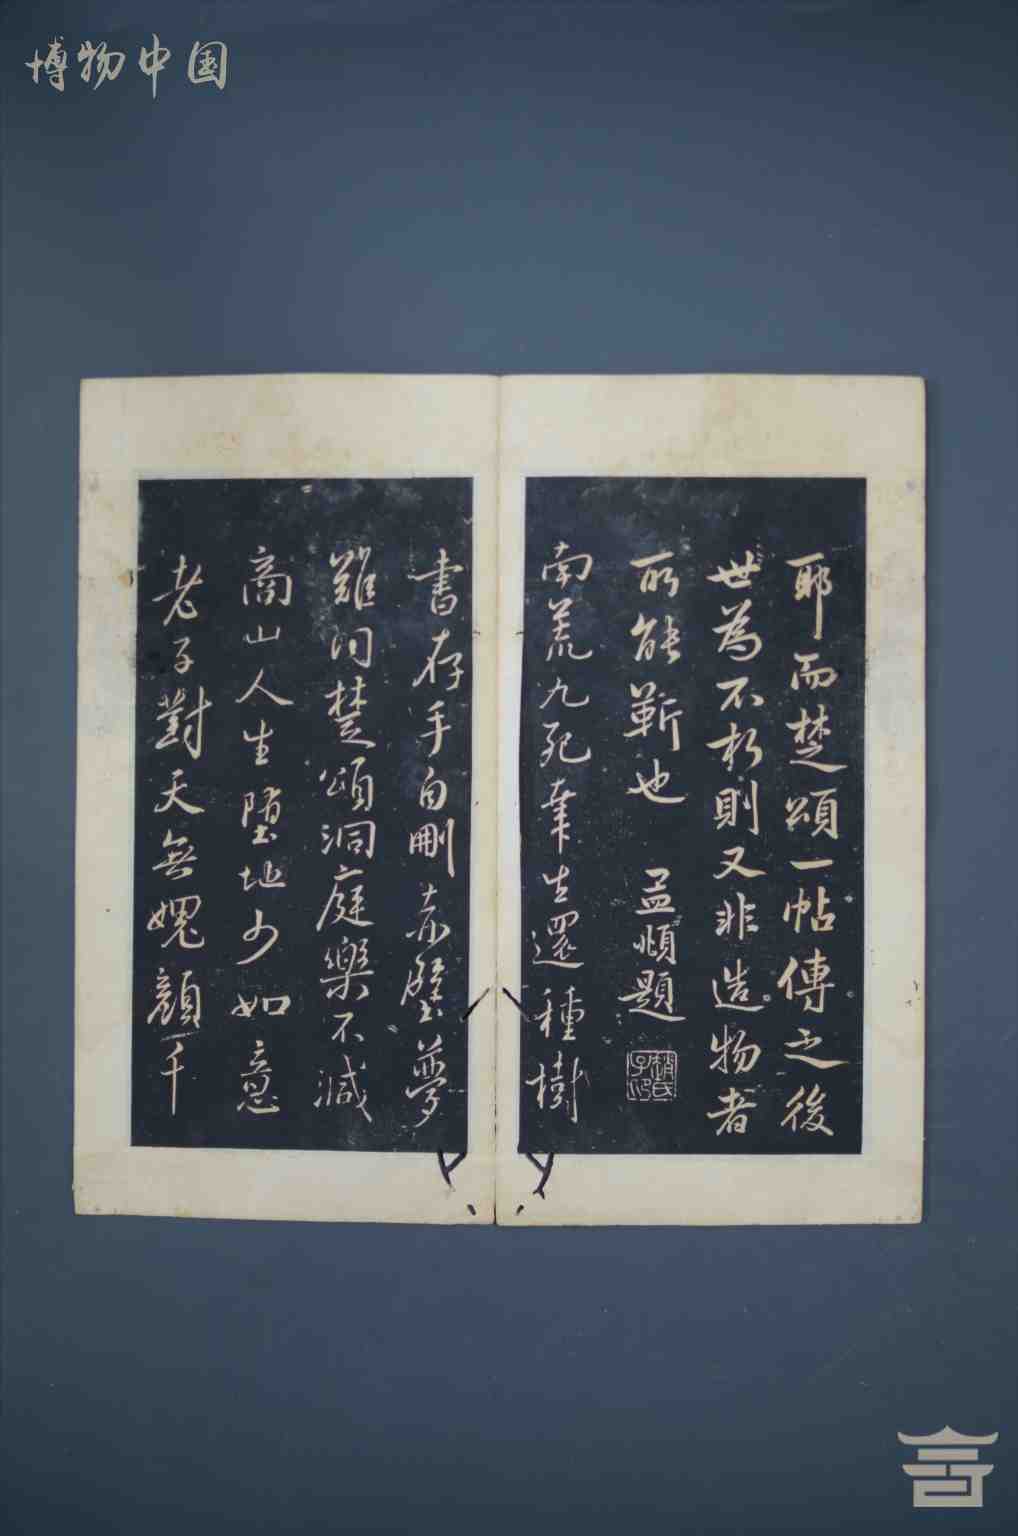 博物中国
耶而楚頌一帖傳之後
世為不朽則又非造物者
所能靳也 孟頫題
趙氏子卬
南荒九死幸生還種樹
書存手自刪赤壁夢
雖同楚頌洞庭樂不減
商山人生墮地少如意
老子對天無媿顏千